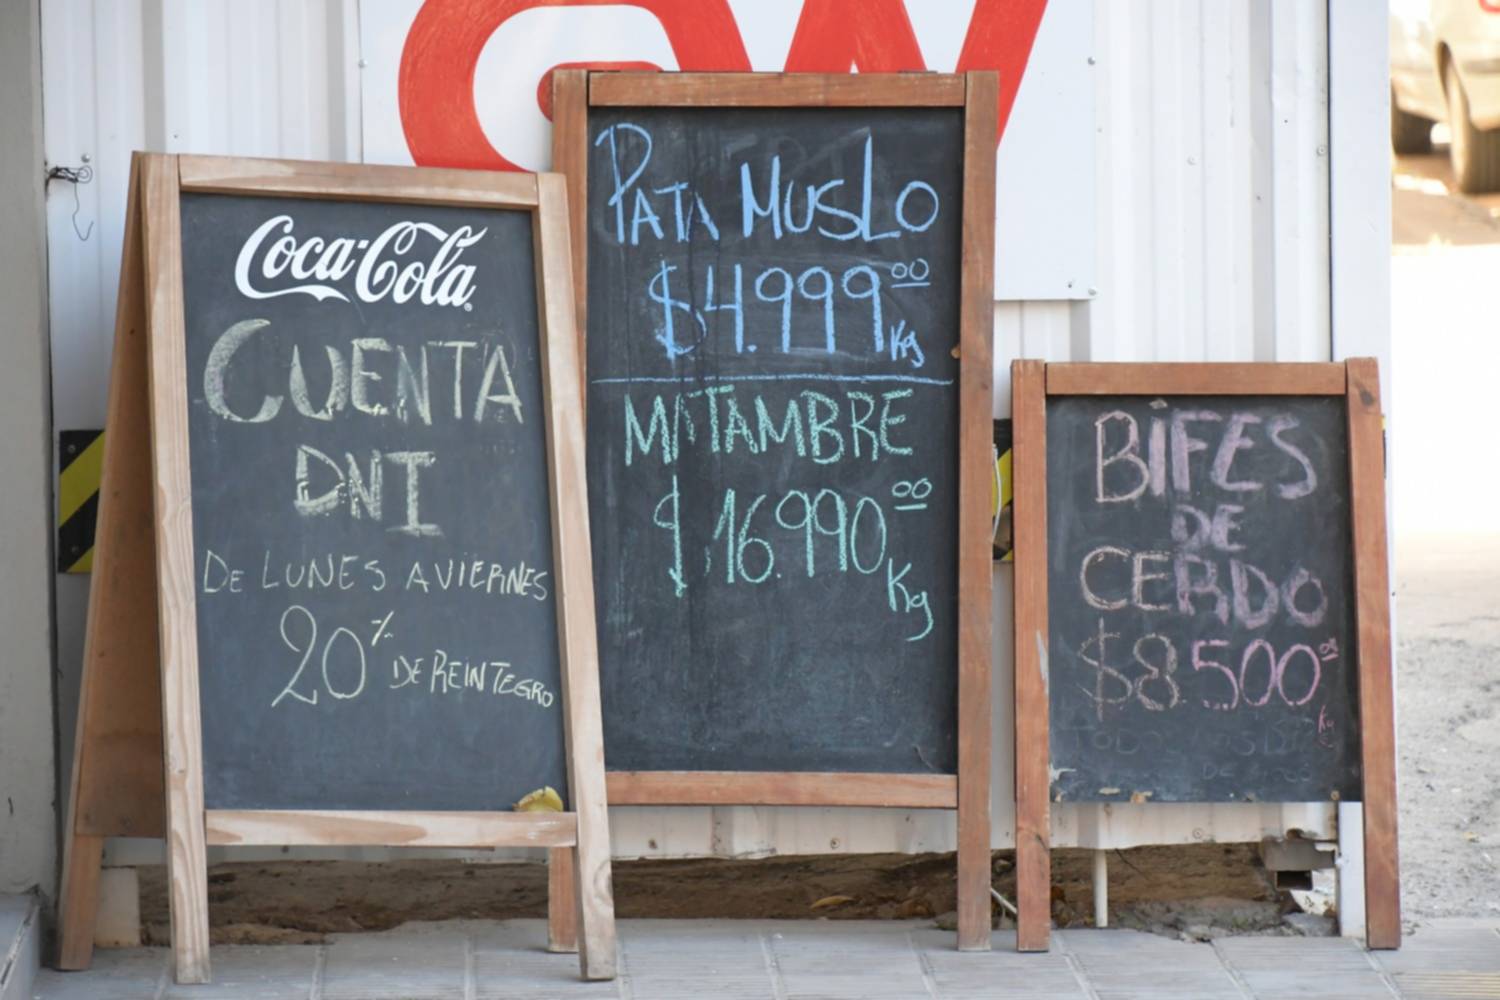 GW
Coca-Cola
CUENTA
DNI
DE LUNES A VIERNES
20% DE REINTEGRO
PATA MUSLO
$4.999⁰⁰ Kg
MATAMBRE
$16.990⁰⁰ Kg
BIFES
DE
CERDO
$8500⁰⁰
Kg
TODOS LOS
DE